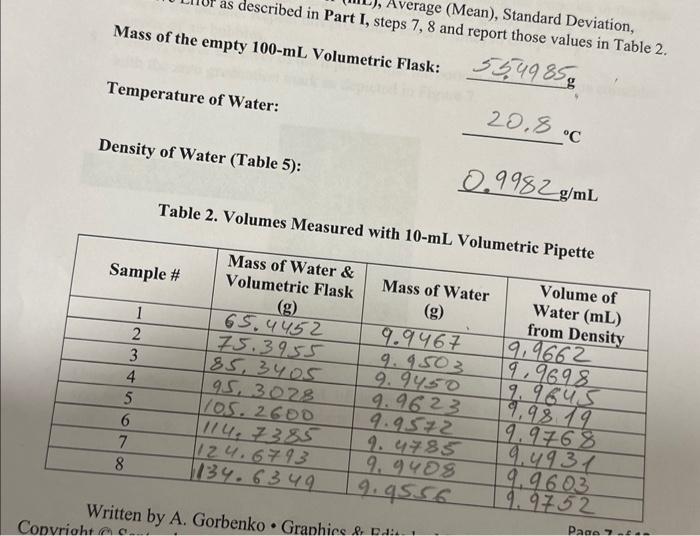 Average (Mean), Standard Deviation,
as described in Part I, steps 7, 8 and report those values in Table 2.
Mass of the empty 100-mL Volumetric Flask: 55.4985 g
Temperature of Water: 20.8 °C
Density of Water (Table 5): 0.9982 g/mL
Table 2. Volumes Measured with 10-mL Volumetric Pipette
Sample # Mass of Water & Volumetric Flask (g) Mass of Water (g) Volume of Water (mL) from Density
1 65.4452 9.9467 9.9662
2 75.3955 9.9503 9.9698
3 85.3405 9.9450 9.9645
4 95.3028 9.9623 9.9819
5 105.2600 9.9572 9.9768
6 114.7385 9.4785 9.4931
7 124.6793 9.9408 9.9603
8 134.6349 9.9556 9.9752
Written by A. Gorbenko • Graphics &
Copyright © Page 7